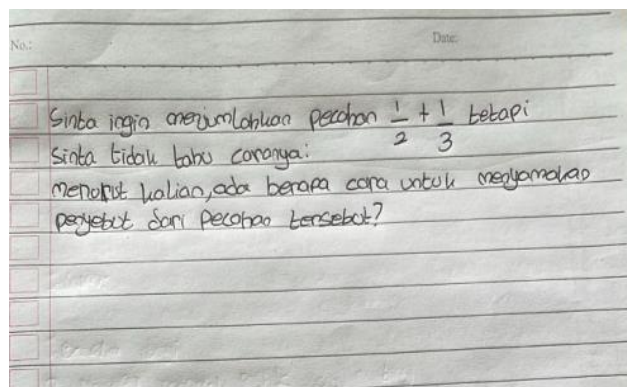 No.:
Date:
Sinta ingin menjumlahkan pecahan 1/2 + 1/3 tetapi
Sinta tidak tahu caranya.
menurut kalian, ada berapa cara untuk menyamakan
penyebut dari pecahan tersebut?